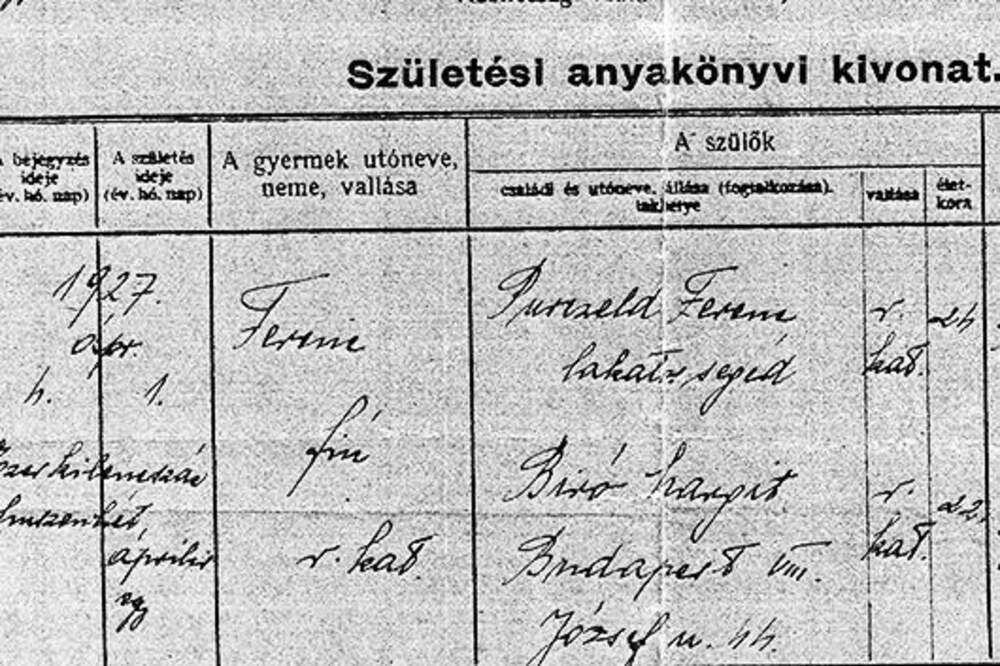 Születési anyakönyvi kivonat.
A bejegyzés ideje (év. hó. nap)
A születés ideje (év. hó. nap)
A gyermek utóneve, neme, vallása
A szülők
családi és utóneve, állása (foglalkozása), lakhelye
vallása
életkora
1927.
ápr.
4. 1.
ezerkilencszáz
huszonhét,
április
egy
Ferenc
fiú
r. kat.
Purczeld Ferenc
lakatos segéd
r. kat.
24
Biró Margit
Budapest VIII.
József u. 44.
r. kat.
22.